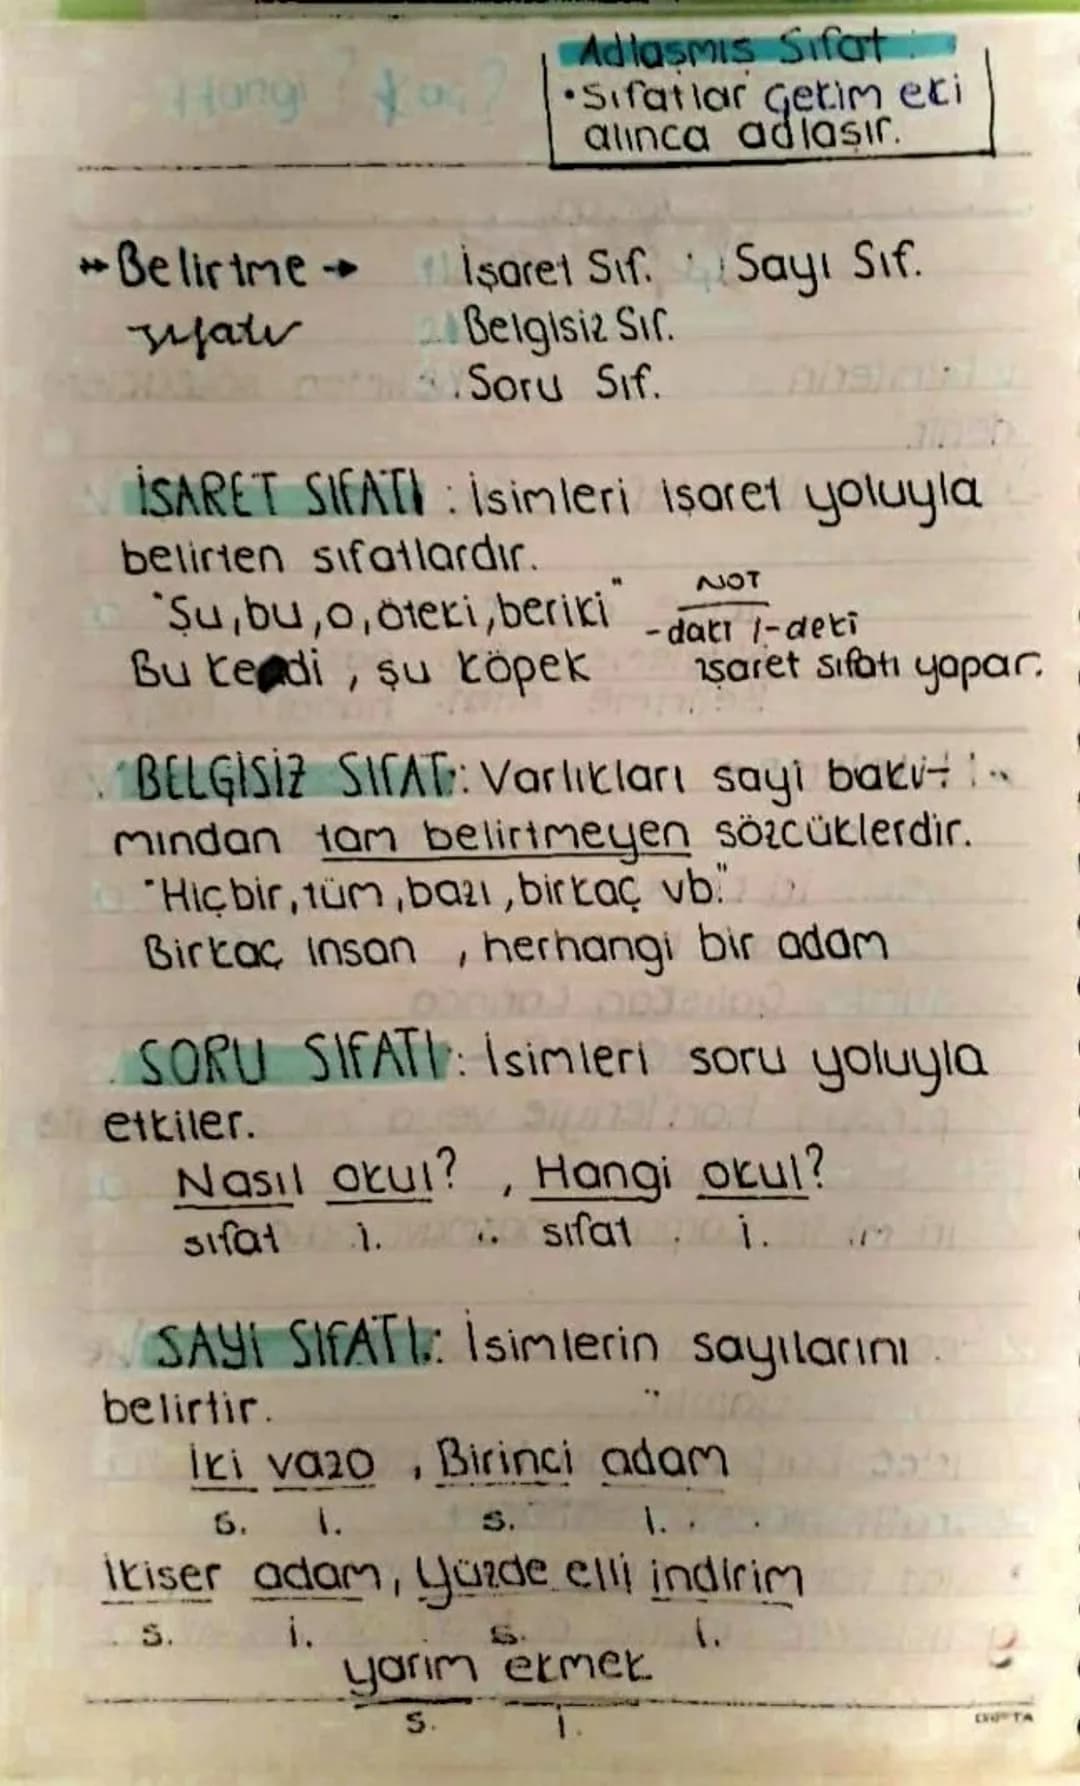 Hangi? Kaç?
Adlaşmış Sıfat:
•Sıfatlar çekim eki
alınca adlaşır.
Belirtme → İşaret Sıf. Sayı Sıf.
sıfatı Belgisiz Sıf.
Soru Sıf.
İŞARET SIFATI: İsimleri işaret yoluyla
belirten sıfatlardır.
"Şu, bu, o, öteki, beriki" NOT
-daki /-deki
Bu kedi, şu köpek işaret sıfatı yapar.
BELGİSİZ SIFAT: Varlıkları sayi bakı-
mından tam belirtmeyen sözcüklerdir.
"Hiçbir, tüm, bazı, birkaç vb."
Birkaç insan, herhangi bir adam
SORU SIFATI: İsimleri soru yoluyla
etkiler.
Nasıl okul?, Hangi okul?
sıfat i. sıfat i.
SAYI SIFATI: İsimlerin sayılarını
belirtir.
İki vazo, Birinci adam
s. i. s. i.
İkişer adam, Yüzde elli indirim
s. i. s. i.
yarım ekmek
s. i.